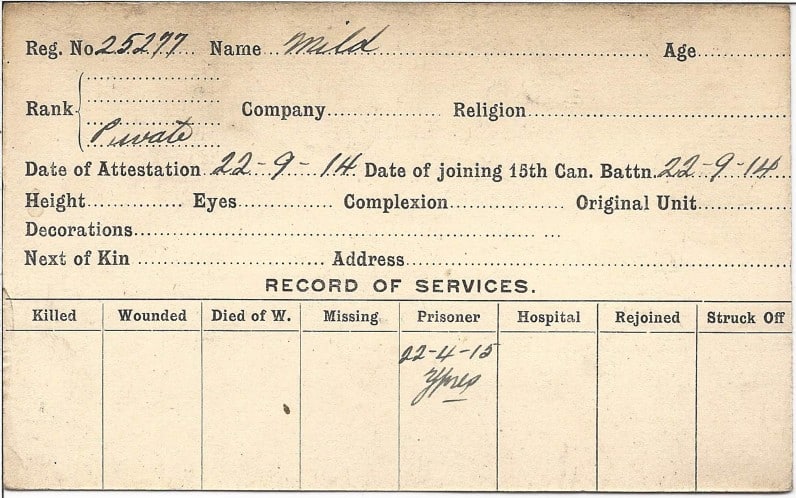 Reg. No 25277 Name Mild Age
Rank Private Company Religion
Date of Attestation 22-9-14 Date of joining 15th Can. Battn. 22-9-14
Height Eyes Complexion Original Unit
Decorations
Next of Kin Address
RECORD OF SERVICES.
Killed Wounded Died of W. Missing Prisoner Hospital Rejoined Struck Off
22-4-15
Ypres